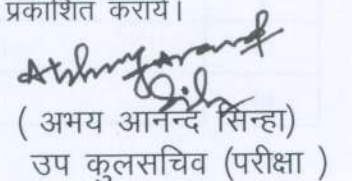 प्रकाशित करायें।
( अभय आनन्द सिन्हा)
उप कुलसचिव (परीक्षा )